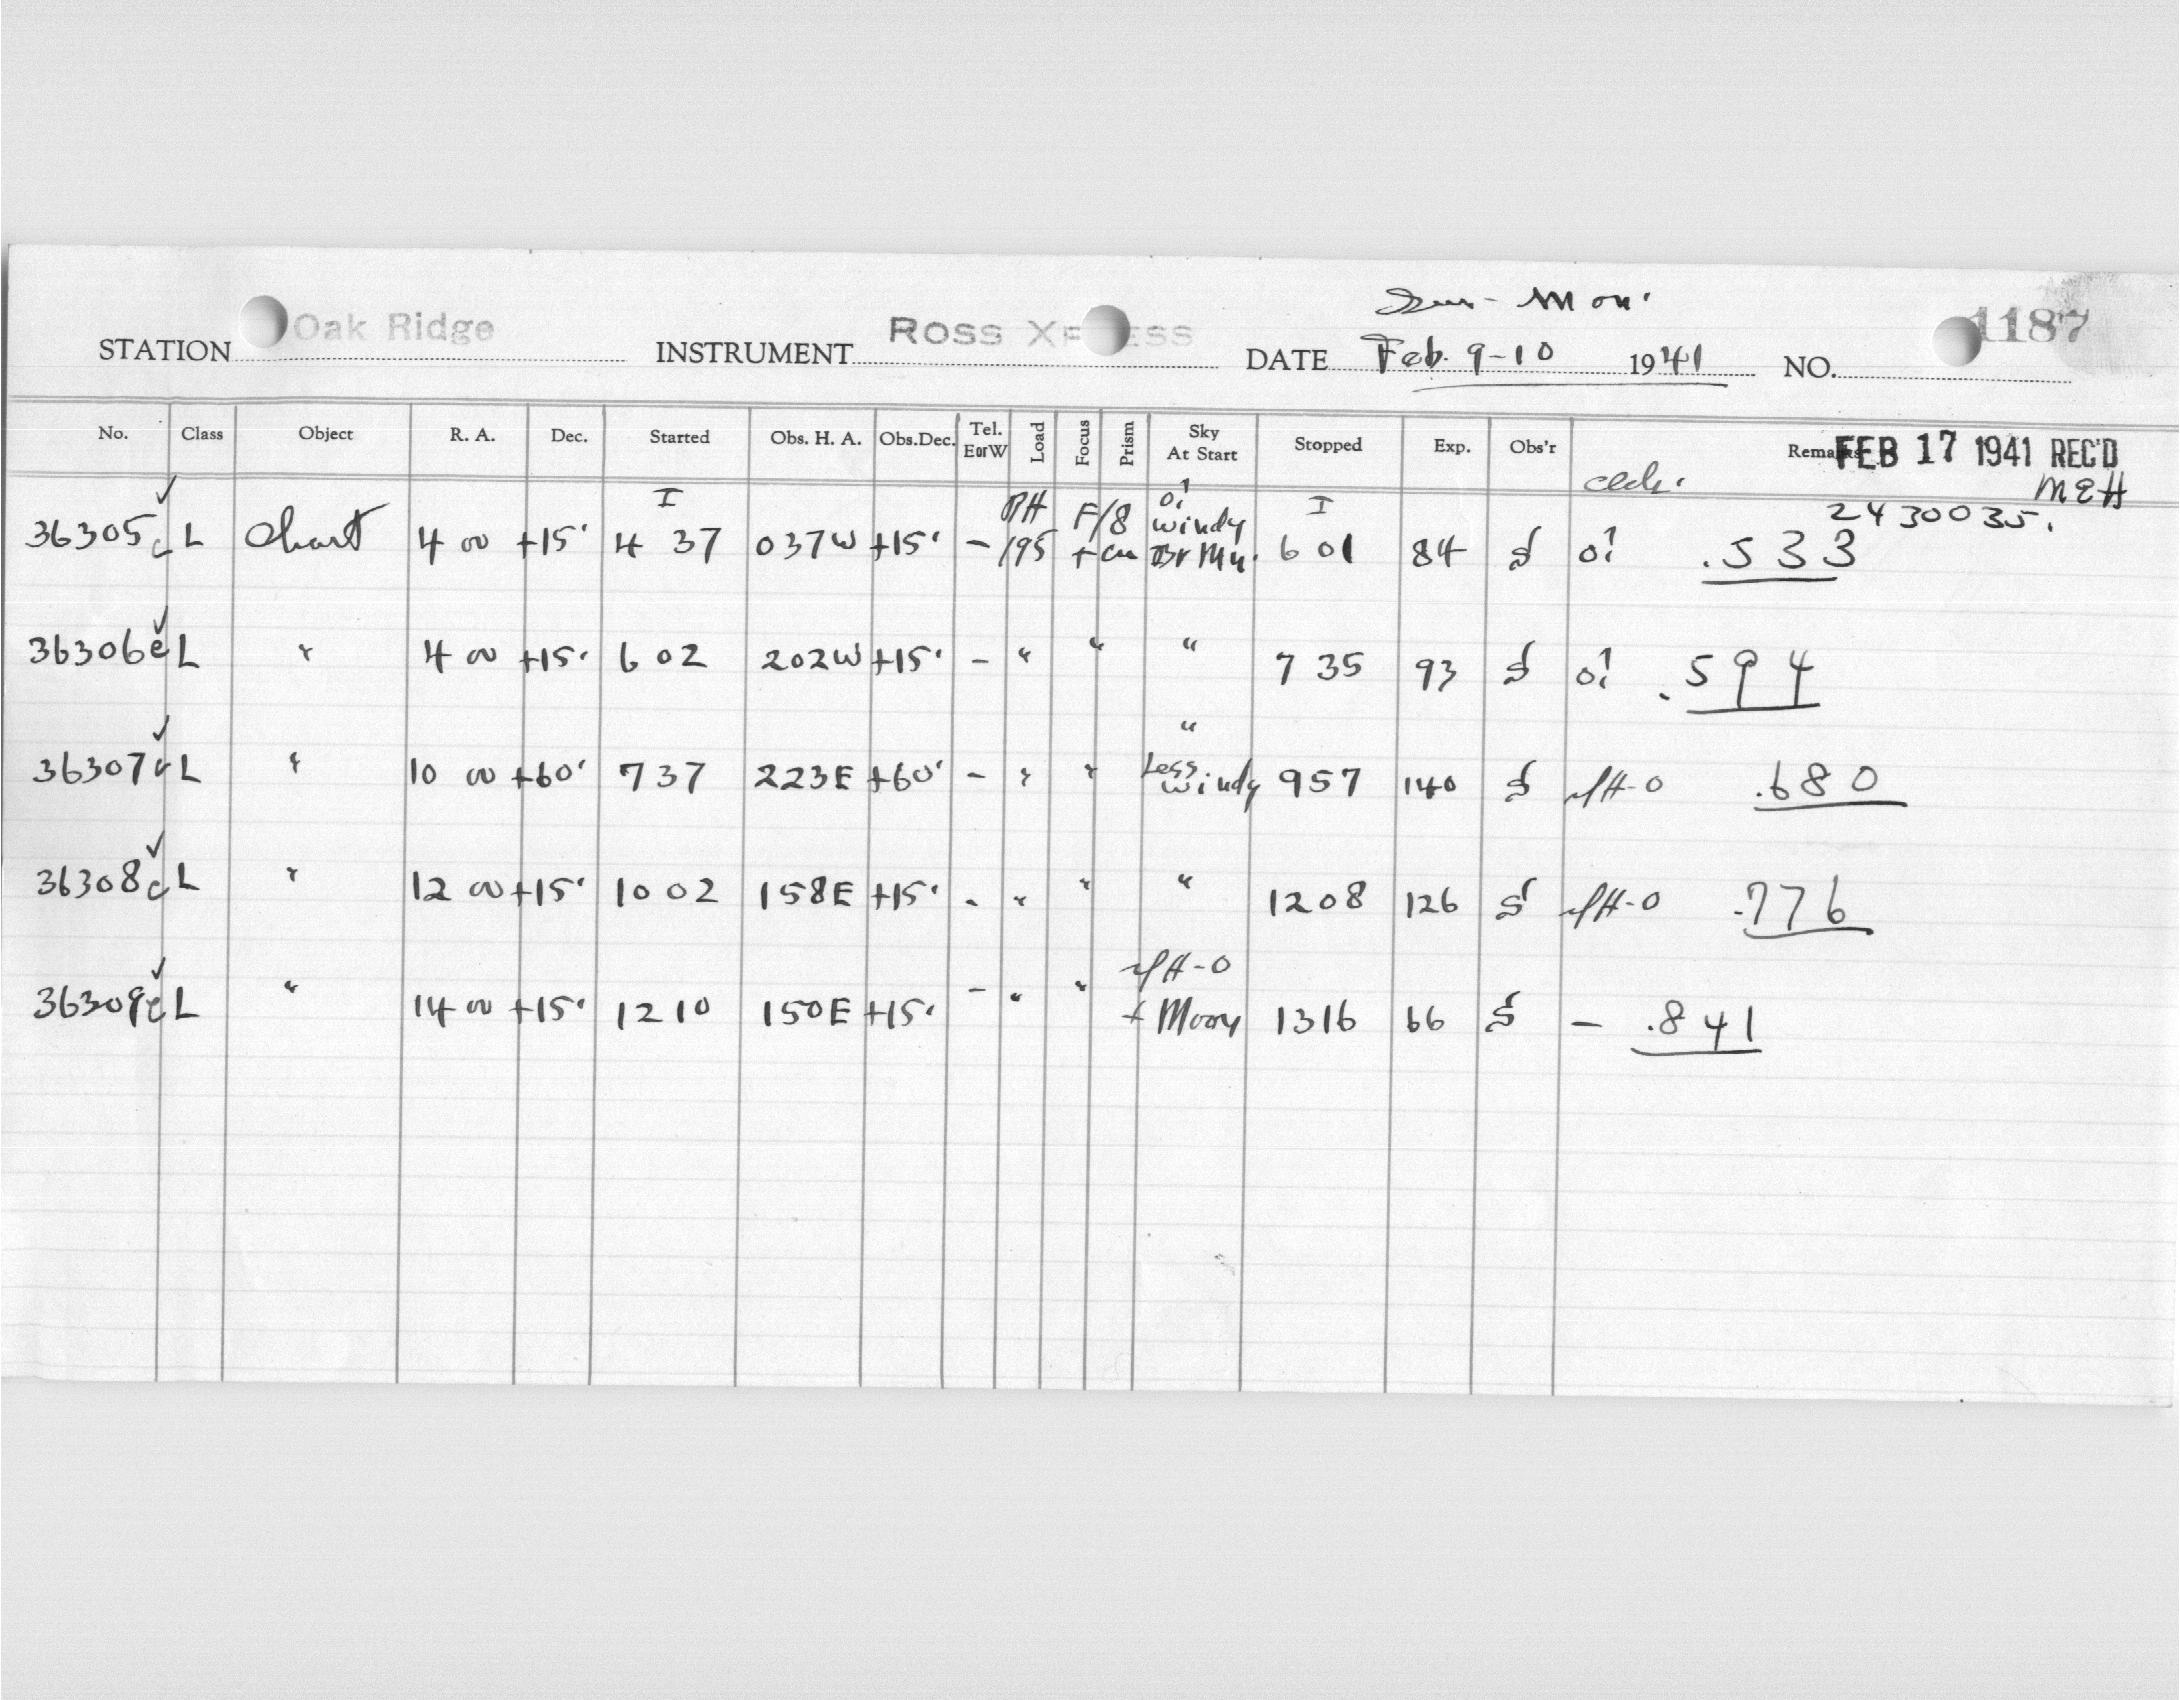 Sun - Mon.
STATION Oak Ridge INSTRUMENT ROSS XPRESS DATE Feb. 9-10 1941 NO. 1187
No. Class Object R. A. Dec. Started Obs. H. A. Obs.Dec. Tel. EorW Load Focus Prism Sky At Start Stopped Exp. Obs'r Remarks FEB 17 1941 REC'D
MEH
2430035.
36305 L Chart 4 00 +15° I 4 37 037W +15° - PH 195 F/8 Windy Br Mn. I 6 01 84 .533
36306 L " 4 00 +15° 6 02 202W +15° - " " " 7 35 93 .594
36307 L " 10 00 +60° 7 37 223E +60° - " " " Less Windy 957 140 H-0 .680
36308 L " 12 00 +15° 10 02 158E +15° - " " " 1208 126 H-0 .776
36309 L " 14 00 +15° 12 10 150E +15° - " " H-0 + Moon 1316 66 - .841